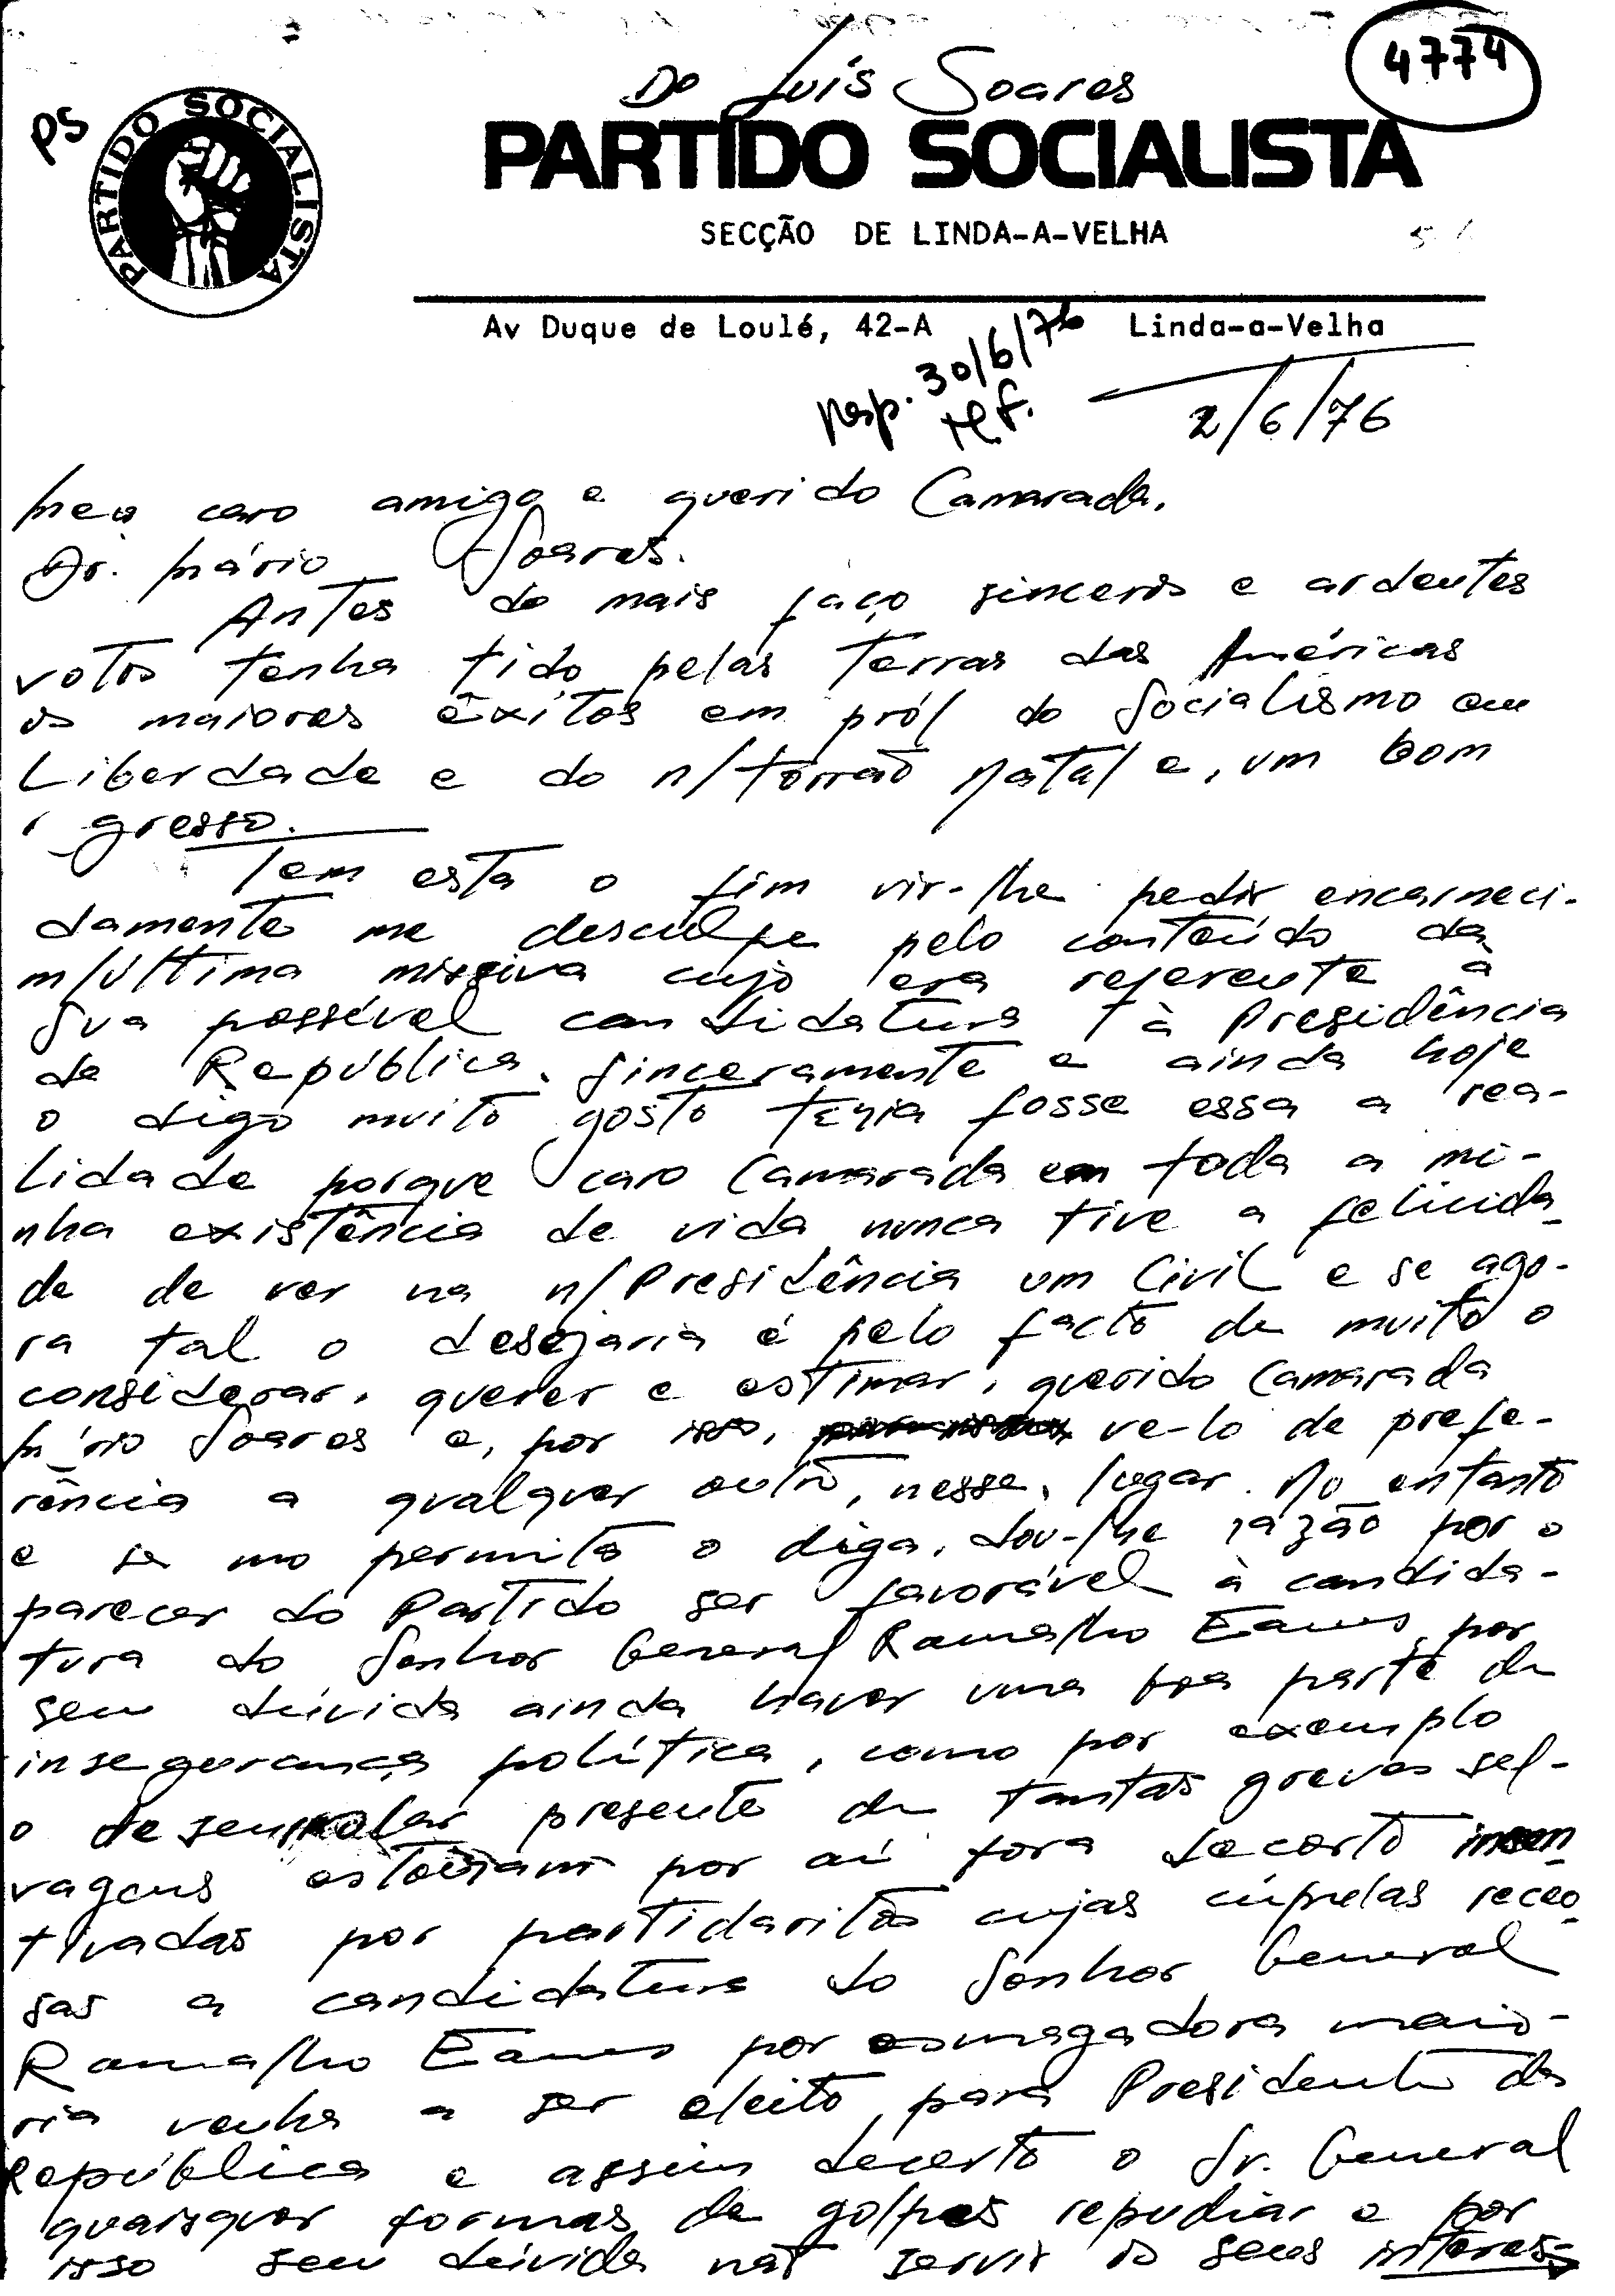 4774
Do Luís Soares
PS
PARTIDO SOCIALISTA
PARTIDO SOCIALISTA
SECÇÃO DE LINDA-A-VELHA
Av Duque de Loulé, 42-A Linda-a-Velha
resp. 30/6/76
tef.
2/6/76
Meu caro amigo e querido Camarada.
Dr. Mário Soares.
Antes do mais faço sinceros e ardentes
votos tenha tido pelas Terras das Américas
os maiores êxitos em pról do Socialismo em
Liberdade e do n/torrão Natal e, um bom
gresso.
Tem esta o fim vir-lhe pedir encarneci-
damente me desculpe pelo conteúdo da
m/última missiva cujo era referente à
Sua possível candidatura à Presidência
da República. Sinceramente e ainda hoje
o digo muito gosto teria fosse essa a rea-
lidade porque caro Camarada em toda a mi-
nha existência de vida nunca tive a felicida-
de de ver na n/Presidência um Civil e se ago-
ra tal o desejaria é pelo facto de muito o
considerar, querer e estimar, querido Camarada
Mário Soares e, por isso, ve-lo de prefe-
rência a qualquer outro, nesse, lugar. No entanto
e se mo permite o diga, dou-lhe razão por o
parecer do Partido ser favorável à candida-
tura do Senhor General Ramalho Eanes por
sem dúvida ainda haver uma boa parte de
insegurança política, como por exemplo
o desenrolar presente de tantas greves sel-
vagens por aí fora decerto incen-
tivadas por partidaritos cujas cúpulas receo-
sas a candidatura do Senhor General
Ramalho Eanes por esmagadora maio-
ria venha a ser eleito para Presidente da
República e assim decerto o Sr. General
quaisquer formas de golpes repudiar e por
isso sem dúvida não servir os seus interes-